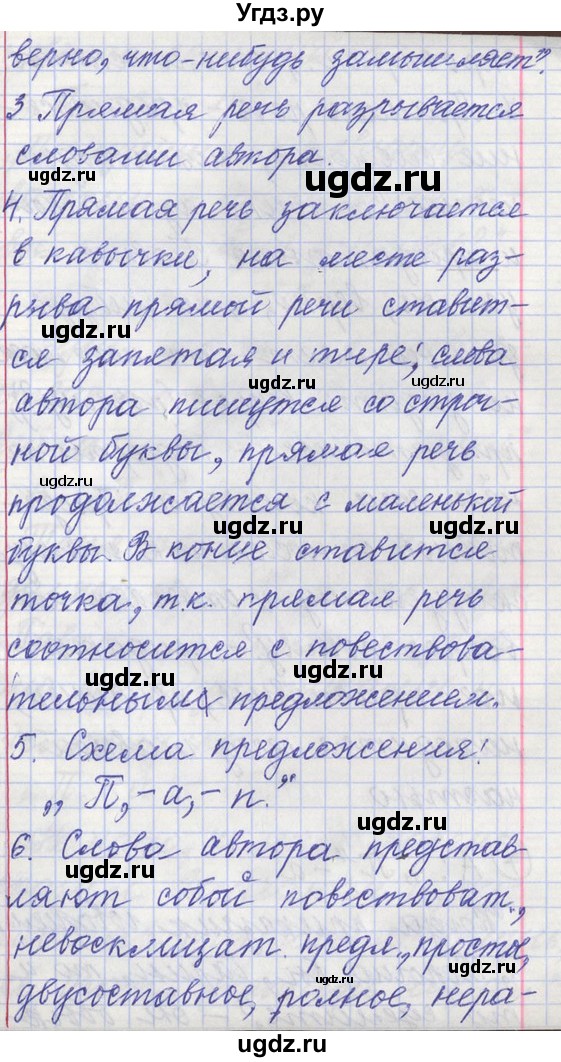 Угдз.ру
верно, что-нибудь замышляет".
3 Прямая речь разрывается
словами автора.
угдз.ru
4. Прямая речь заключается
в кавычки, на месте раз-
рыва прямой речи ставит-
ся запятая и тире; слова
автора пишутся со строч-
ной буквы, прямая речь
продолжается с маленькой
буквы. В конце ставится
точка, т.к. прямая речь
соотносится с повествова-
тельным предложением.
5. Схема предложения:
„П, – а, – п."
6. Слова автора представ-
ляют собой повествоват.,
невосклицат. предл., простое,
двусоставное, полное, нера-